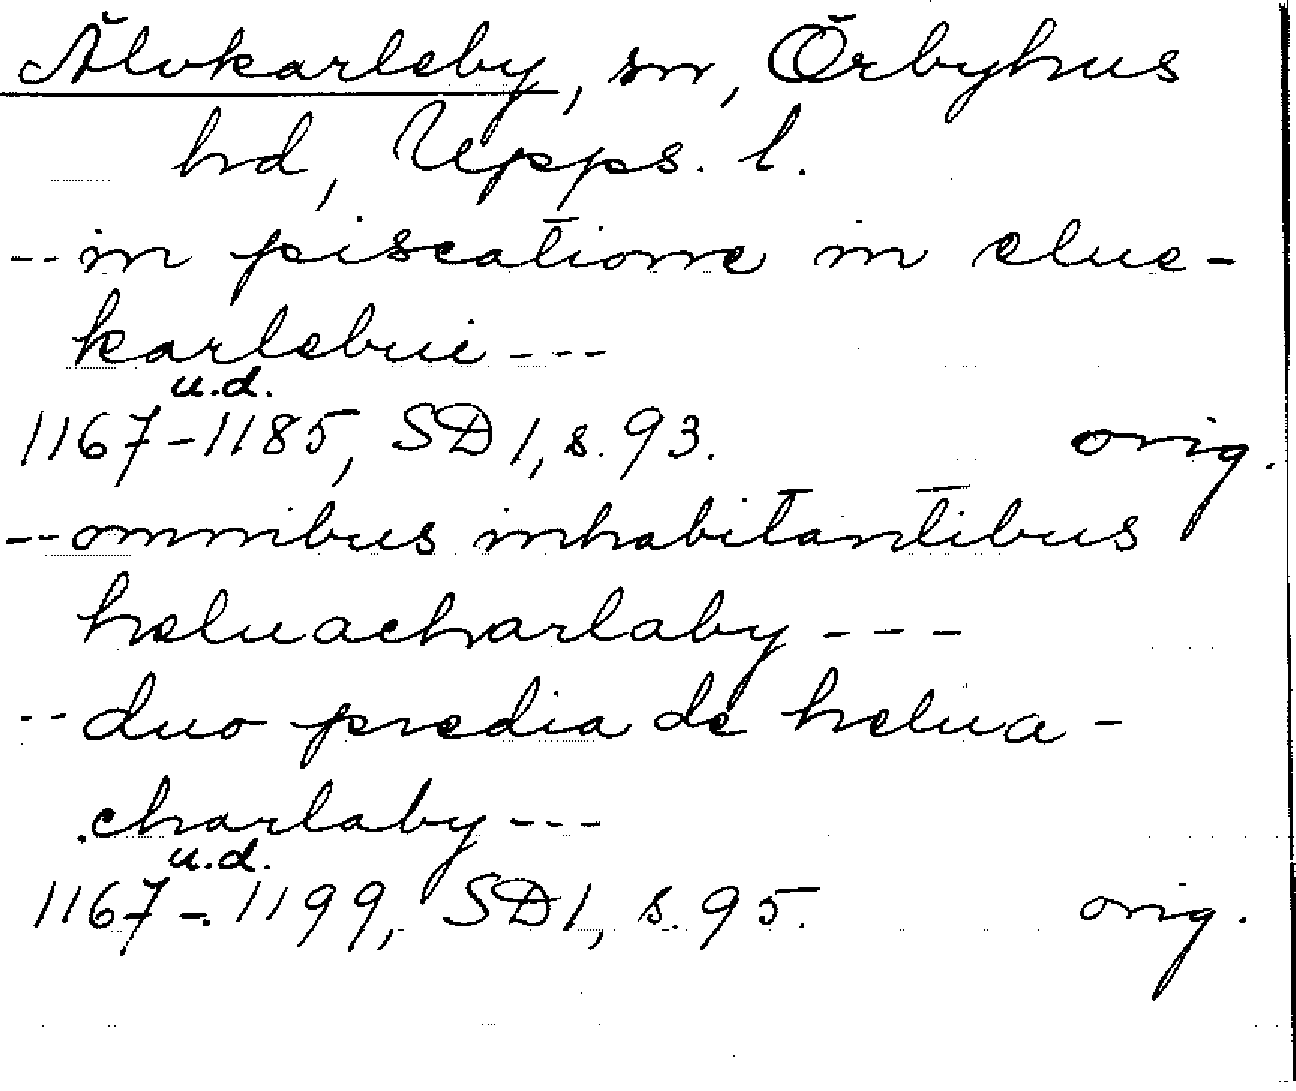 Älvkarleby, sn, Örbyhus
hd, Upps. l.
--in piscatione in elue-
karlebui ---
u.d.
1167-1185, SD 1, s. 93. orig.
--omnibus inhabitantibus
heluacharlaby ---
--duo predia de helua-
charlaby ---
u.d.
1167-1199, SD 1, s. 95. orig.